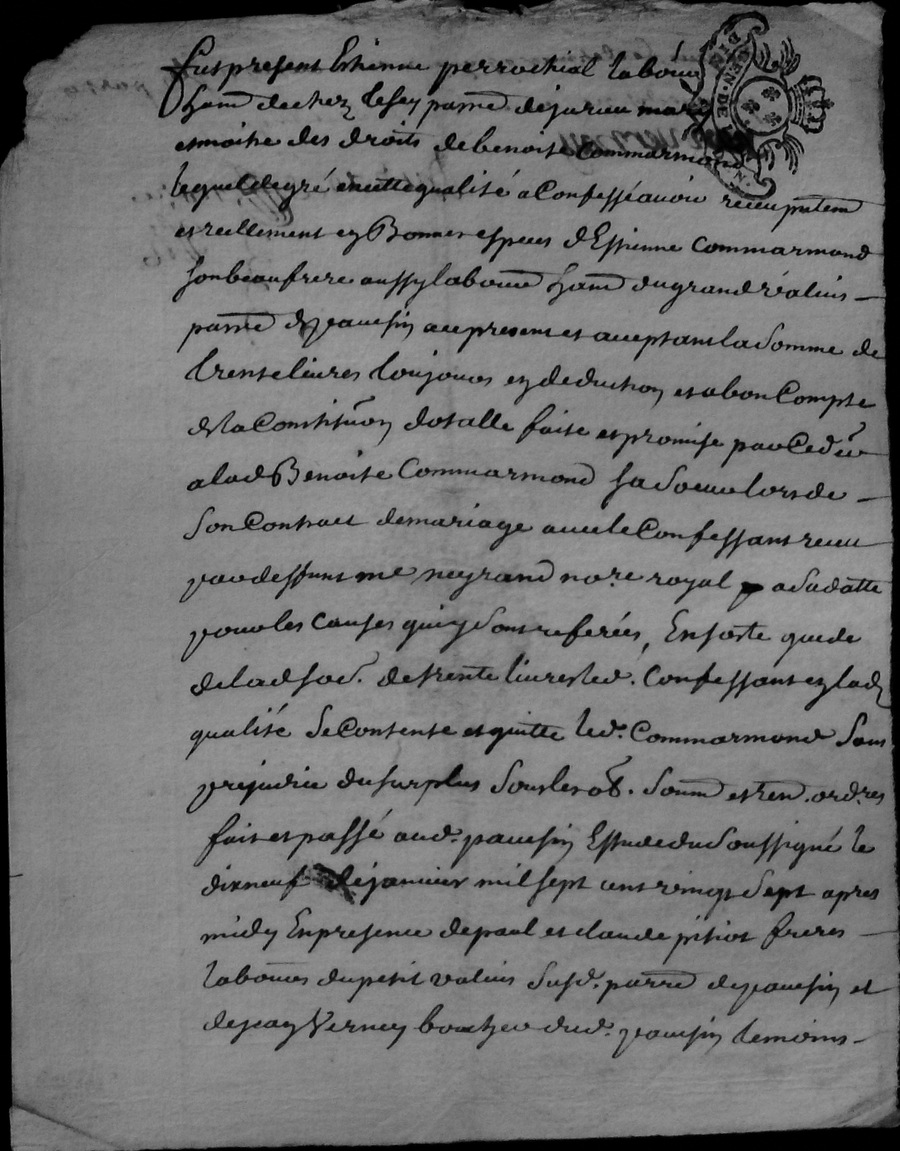 Fut present Estienne perrochial labour
hant de chez le fey parre de jarieu mari
et maitre des droits de benoite Commarmond
lequel de gré en cette qualité a Confessé avoir receu pntem
et reellement en Bonnes especes d'Estienne Commarmond
son beau frere aussy labour hant du grand
parre de pavesin a ce present et acceptant la somme de
trente livres toujours en deduction et a bon Compte
de la Constitution dotalle faite et promise par Ced
a lad Benoite Commarmond sa soeur lors de
son Contract de mariage avec le Confessant receu
par deffunt me neyrand nore royal a sa datte
pour les causes qui y sont referées, En sorte que de
de lad so. de trente livres led. Confessant en lad
qualité se Contente et quitte led. Commarmond sans
prejudice du surplus sous les ob. soum et ren. ord.res
fait et passé aud. pavesin Estude du soussigné le
dixneuf de janvier mil sept cent vingt sept apres
midy En presence de paul et claude pitiot freres
labours du petit susd. parre de pavesin et
de jean Verney boucher dud. pavesin temoins
GEN. DE